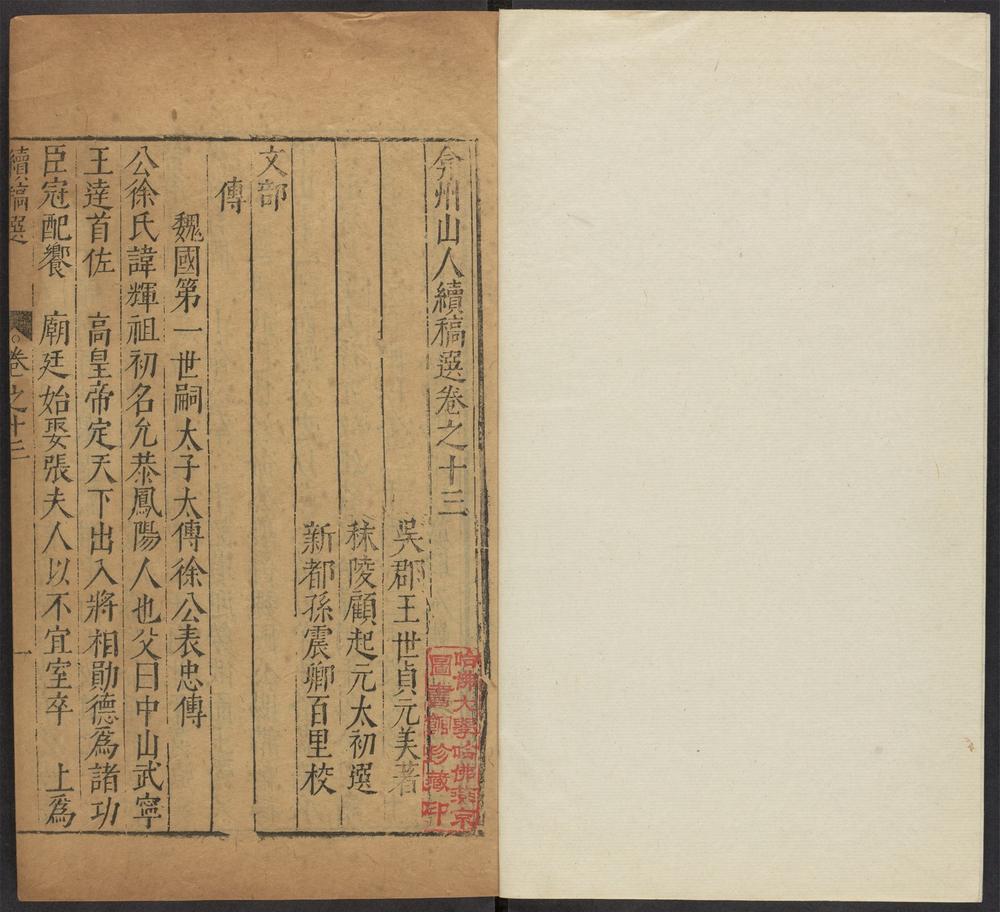 弇州山人續稿選卷之十三
吳郡王世貞元美著
秣陵顧起元太初選
新都孫震卿百里校
文部
傳
魏國第一世嗣太子太傅徐公表忠傳
公徐氏諱輝祖初名允恭鳳陽人也父曰中山武寧
王達首佐　高皇帝定天下出入將相勛德爲諸功
臣冠配饗　廟廷始娶張夫人以不宜室卒　上爲
續稿選　卷之十三　一
哈佛大學哈佛燕京
圖書館珍藏印